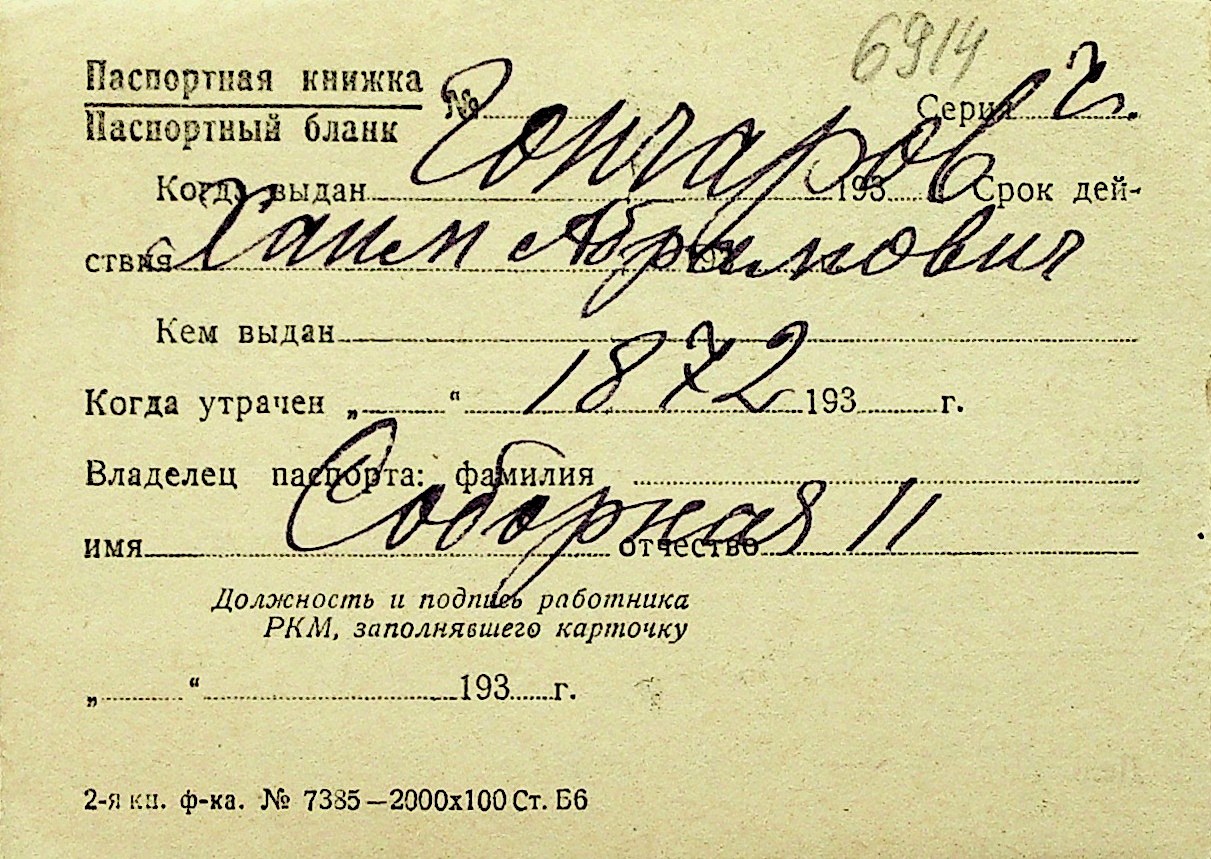 6914
Паспортная книжка
Паспортный бланк № Серия
Гончаров
Когда выдан 193 Срок дей-
ствия 193
Хаим Абрамович
Кем выдан
1872
Когда утрачен „ “ 193 г.
Владелец паспорта: фамилия
Соборная 11
имя отчество
Должность и подпись работника
РКМ, заполнявшего карточку
„ “ 193 г.
2-я кн. ф-ка. № 7385—2000х100 Ст. Б6